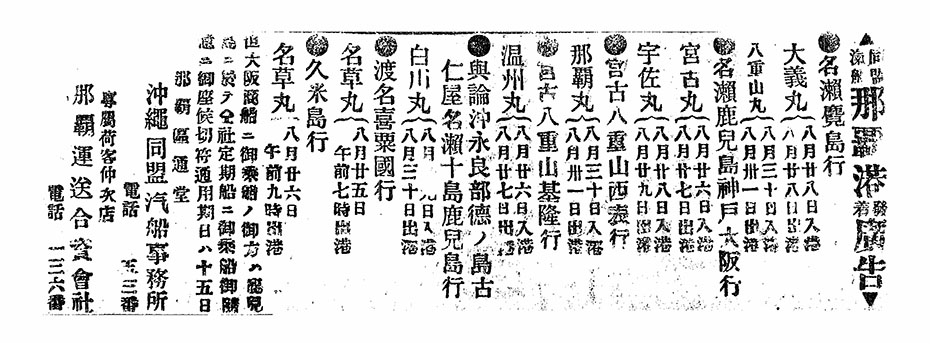 ▲同盟
汽船
那覇港發着廣告▼
●名瀬鹿兒島行
大義丸 八月廿八日入港
八月廿 日出港
八重山丸 八月三十日入港
八月卅一日出港
●名瀬鹿兒島神戸大阪行
宮古丸 八月廿六日入港
八月廿八日出港
宇佐丸 八月廿八日入港
八月廿九日出港
●宮古八重山西表行
那覇丸 八月三十日入港
八月卅一日出港
●宮古八重山基隆行
温州丸 八月廿六日入港
八月廿七日出港
●與論沖永良部德ノ島古
仁屋名瀬十島鹿兒島行
白川丸 八月 九日入港
八月三十日出港
●渡名喜粟國行
名草丸 八月廿五日
午前七時出港
●久米島行
名草丸 八月廿六日
午前九時出港
但大阪商船ニ御乘船ノ御方ハ鹿兒
島ニ於テ仝社定期船ニ御乘船御隨
意ニ御座候切符通用期日ハ十五日
那覇區通堂
沖繩同盟汽船事務所
電話 五三番
專屬荷客仲次店
那覇運送合資會社
電話 一三六番